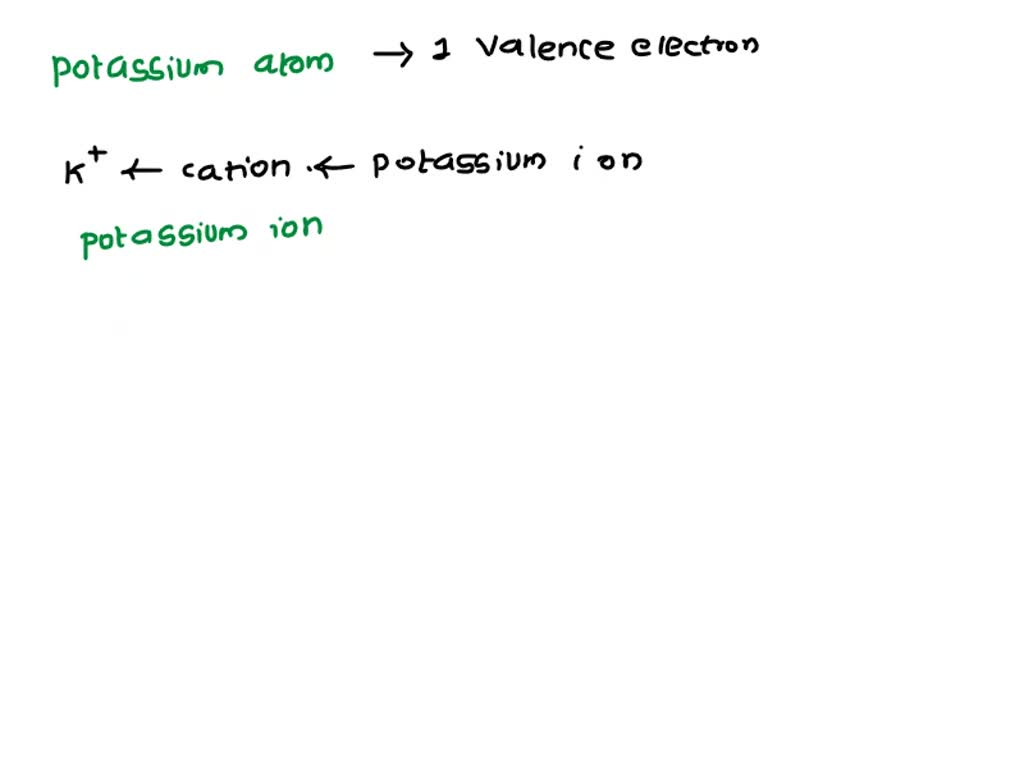 potassium atom → 1 Valence electron
K⁺ ← cation .← potassium ion
potassium ion